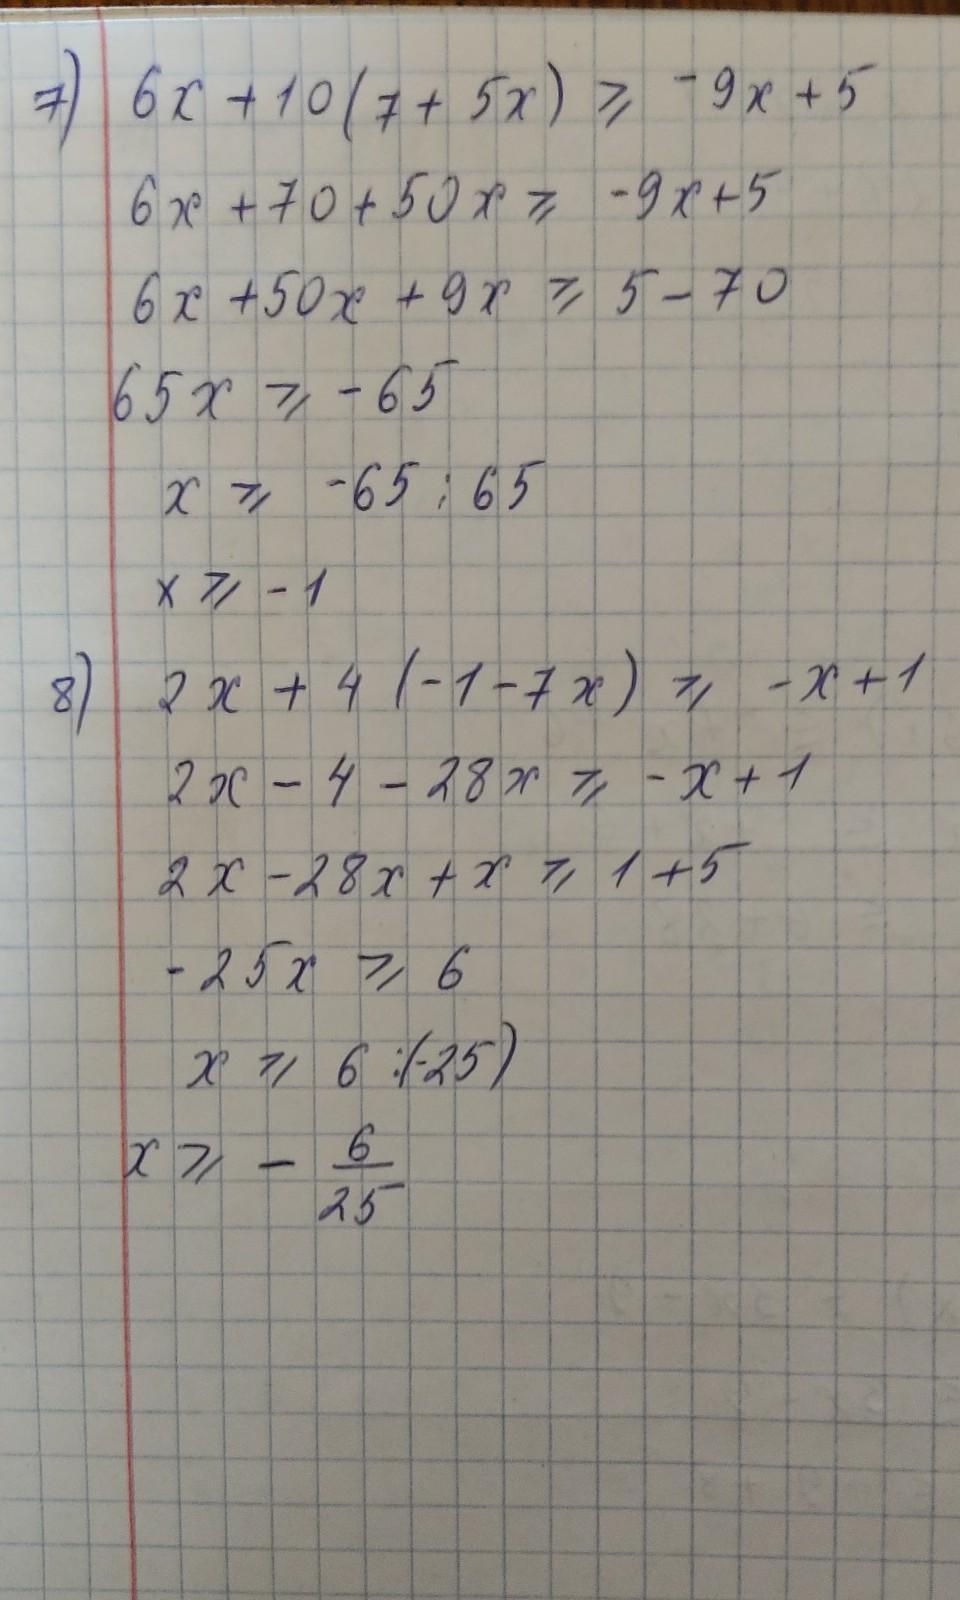 7) 6x + 10(7 + 5x) ⩾ -9x + 5
6x + 70 + 50x ⩾ -9x + 5
6x + 50x + 9x ⩾ 5 - 70
65x ⩾ -65
x ⩾ -65 : 65
x ⩾ -1
8) 2x + 4(-1 - 7x) ⩾ -x + 1
2x - 4 - 28x ⩾ -x + 1
2x - 28x + x ⩾ 1 + 5
-25x ⩾ 6
x ⩾ 6 :(-25)
x ⩾ - 6/25